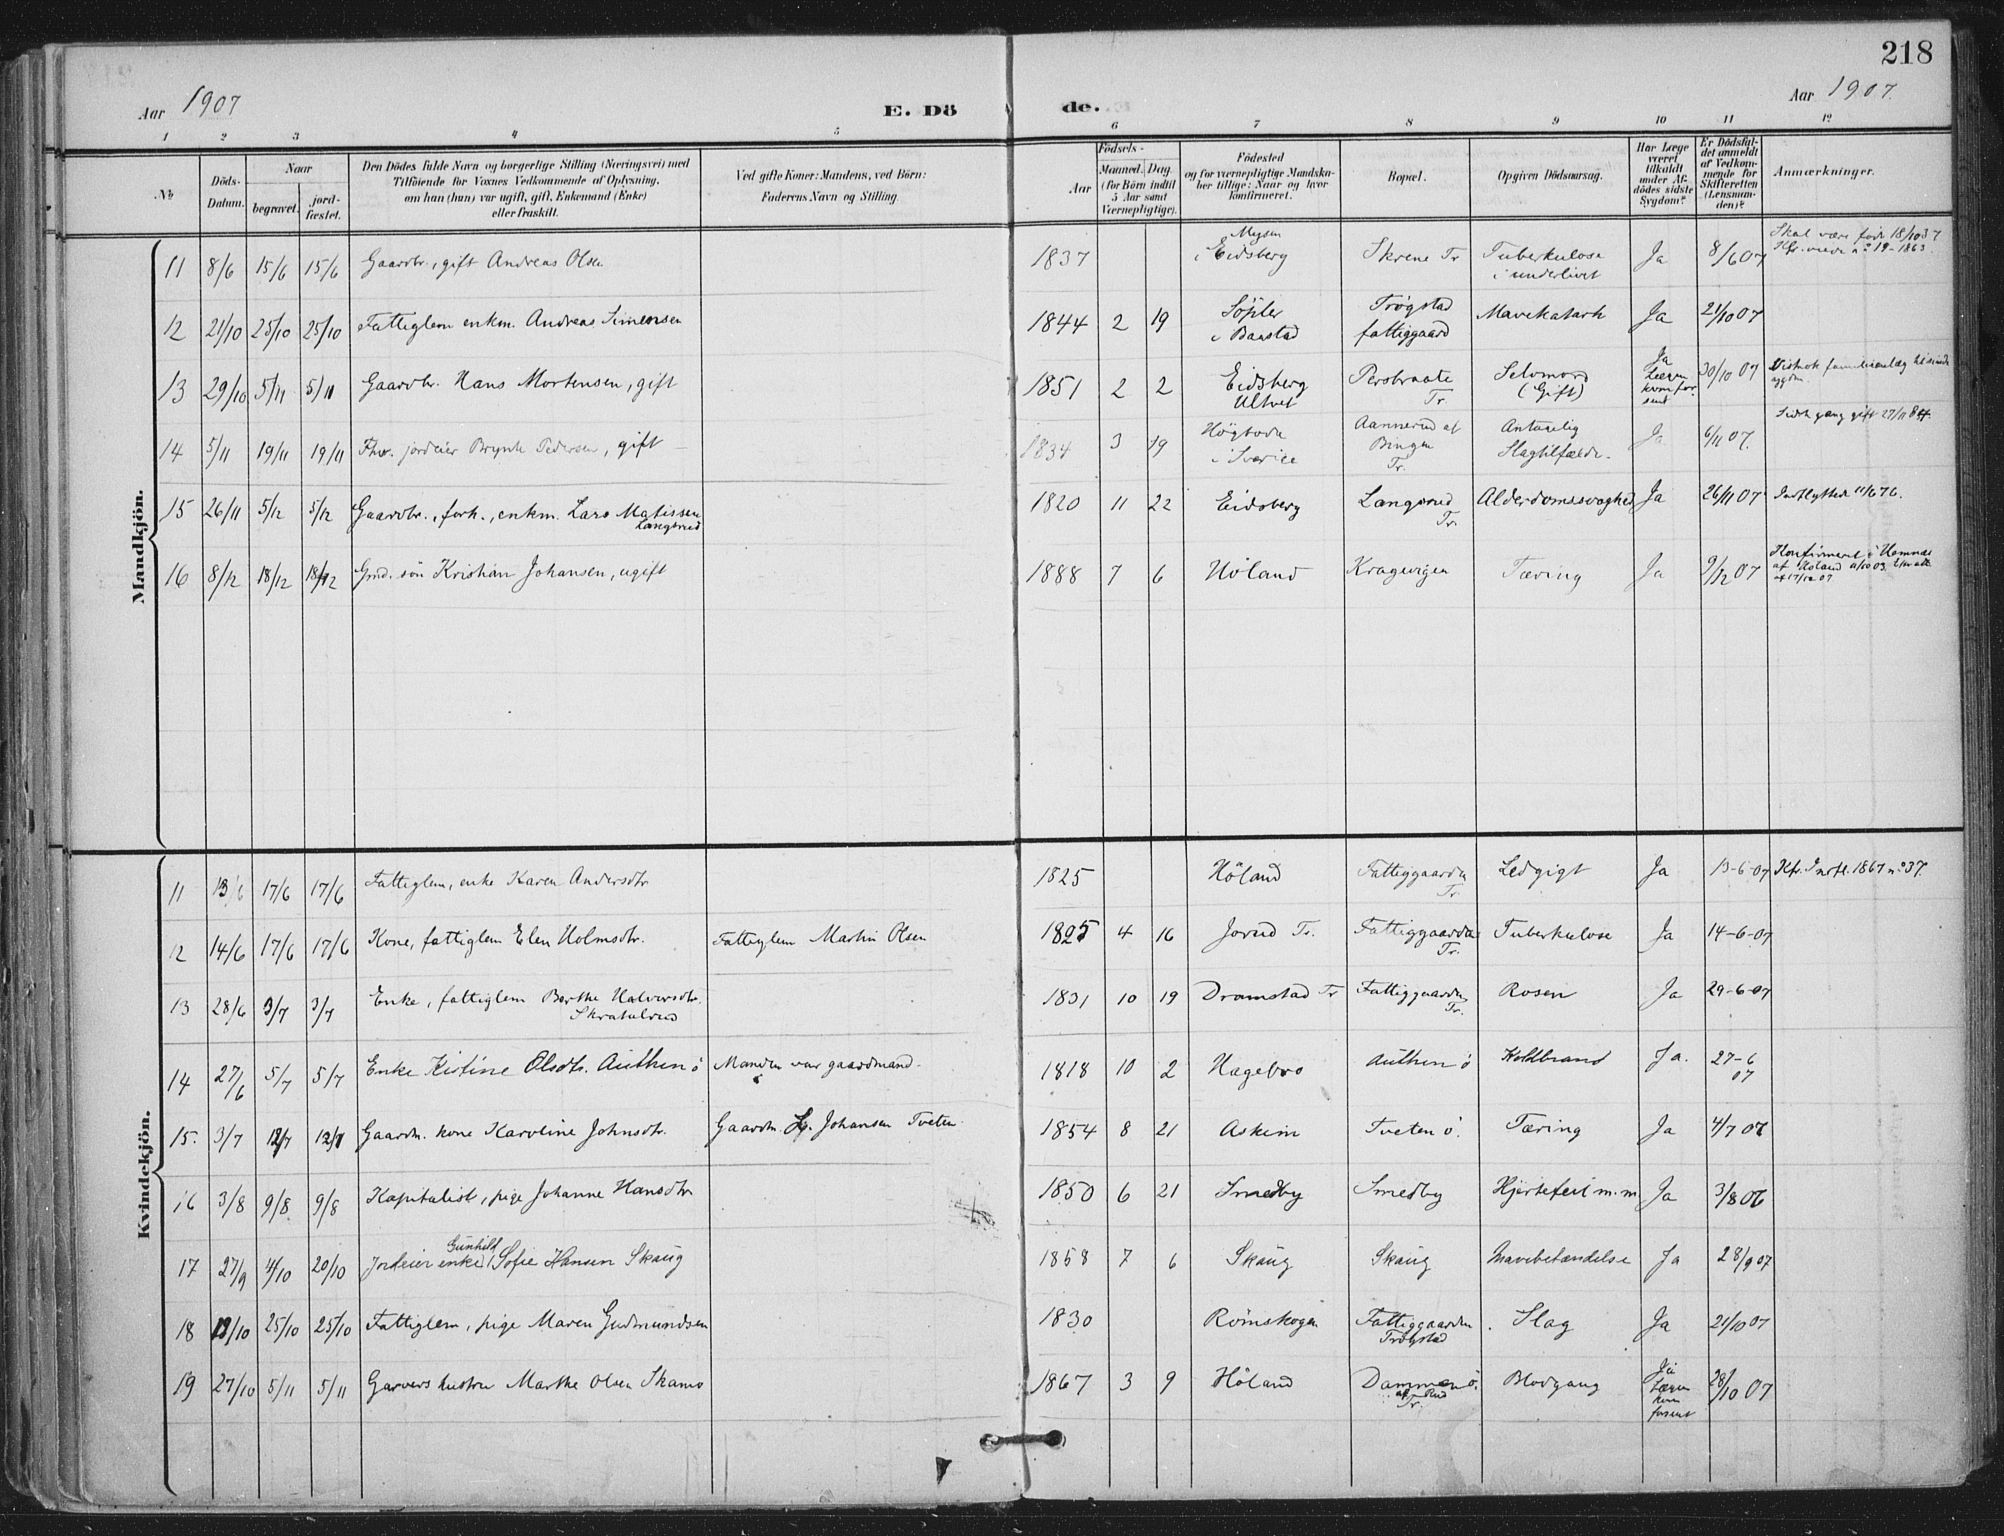 218
Aar 1907
E. Dö
de.
Aar 1907.
1 2 3 4 5 6 7 8 9 10 11 12
No
Döds-Datum.
Naar
begravet.
jord-fæstet.
Den Dödes fulde Navn og borgerlige Stilling (Næringsvei) med
Tilföiende for Voxnes Vedkommende af Oplysning,
om han (hun) var ugift, gift, Enkemand (Enke)
eller fraskilt.
Ved gifte Koner: Mandens, ved Börn:
Faderens Navn og Stilling.
Födsels-
Aar
Maaned. Dag.
(for Börn indtil
5 Aar samt
Værnepligtige).
Födested
og for værnepligtige Mandska-
ber tillige: Naar og hvor
konfirmeret.
Bopæl.
Opgiven Dödsaarsag.
Har Læge
været
tilkaldt
under Af-
dödes sidste
Sygdom?
Er Dödsfal-
det anmeldt
af Vedkom-
mende for
Skifteretten
(Lensman-
den)?
Anmærkninger.
Mandkjön.
11 8/6 15/6 15/6 Gaardbr., gift Andreas Olsen 1837 Mysen i Eidsberg Skrene Tr Tuberkulose i underlivet Ja 8/6 07 Skal være född 18/10 37
12 21/10 25/10 25/10 Fattiglem enkm. Andreas Simensen 1844 2 19 Söpler i Baastad Trøgstad fattiggaard Mavekatarh Ja 21/10 07
13 29/10 5/11 5/11 Gaardbr. Hans Mortensen, gift 1851 2 2 Eidsberg Ultvet Persbraate Tr. Selvmord (Gift) Ja Lægen kom for sent 30/10 07
14 5/11 19/11 19/11 Fhv. jordeier Brynte Pedersen, gift 1834 3 19 Högboda i Sverige Aannerud af Bingen Tr. Antagelig Slagtilfælde. Ja 6/11 07.
15 26/11 5/12 5/12 Gaardbr., fork., enkm. Lars Matissen Langsrud 1820 11 22 Eidsberg Langsrud Tr. Alderdomssvaghed Ja 26/11 07 Indflyttet 11/6 76.
16 8/12 18/12 18/12 Grd. sön Kristian Johansen, ugift 1888 7 6 Höland Kragvigen Tæring Ja 9/12 07 Konfirmeret i Hemnes af Höland
Kvindekjön.
11 13/6 17/6 17/6 Fattiglem, enke Karen Andersdtr 1825 Höland Fattiggaarden Tr. Ledgigt Ja 13-6-07 Kfr. Indfl. 1867 no 37.
12 14/6 17/6 17/6 Kone, fattiglem Elen Holmsdtr. Fattiglem Martin Olsen 1825 4 16 Jorud Tr. Fattiggaarden Tr. Tuberkulose Ja 14-6-07
13 28/6 3/7 3/7 Enke, fattiglem Berthe Halvorsdtr. Skratulrud 1831 10 19 Dramstad Tr Fattiggaarden Tr. Rosen Ja 29-6-07
14 27/6 5/7 5/7 Enke Kistine Olsdtr. Authen ö Manden var gaardmand. 1818 10 2 Hagebro Authen ö Koldbrand Ja. 27-6 07
15. 3/7 12/7 12/7 Gaardm. kone Karoline Johnsdtr. Gaardm. Johansen Tveten. 1854 8 21 Askim Tveten ö. Tæring Ja 4/7 07
16 3/8 9/8 9/8 Kapitalist, pige Johanne Hansdtr 1850 6 21 Smedby Smedby Hjertefeil m.m Ja 3/8 06
17 27/9 4/10 20/10 Jordeier enke Gunhild Sofie Hansen Skaug 1858 7 6 Skaug Skaug Mavebetændelse Ja 28/9 07
18 13/10 25/10 25/10 Fattiglem, pige Maren Gudmundsen 1830 Römskogen Fattiggaarden Trögstad Slag Ja 21/10 07
19 27/10 5/11 5/11 Garvers hustru Marthe Olsen Skamo 1867 3 9 Höland Dammen ö. af Rud Tr. Blodgang Ja Lægen kom forsent 28/10 07